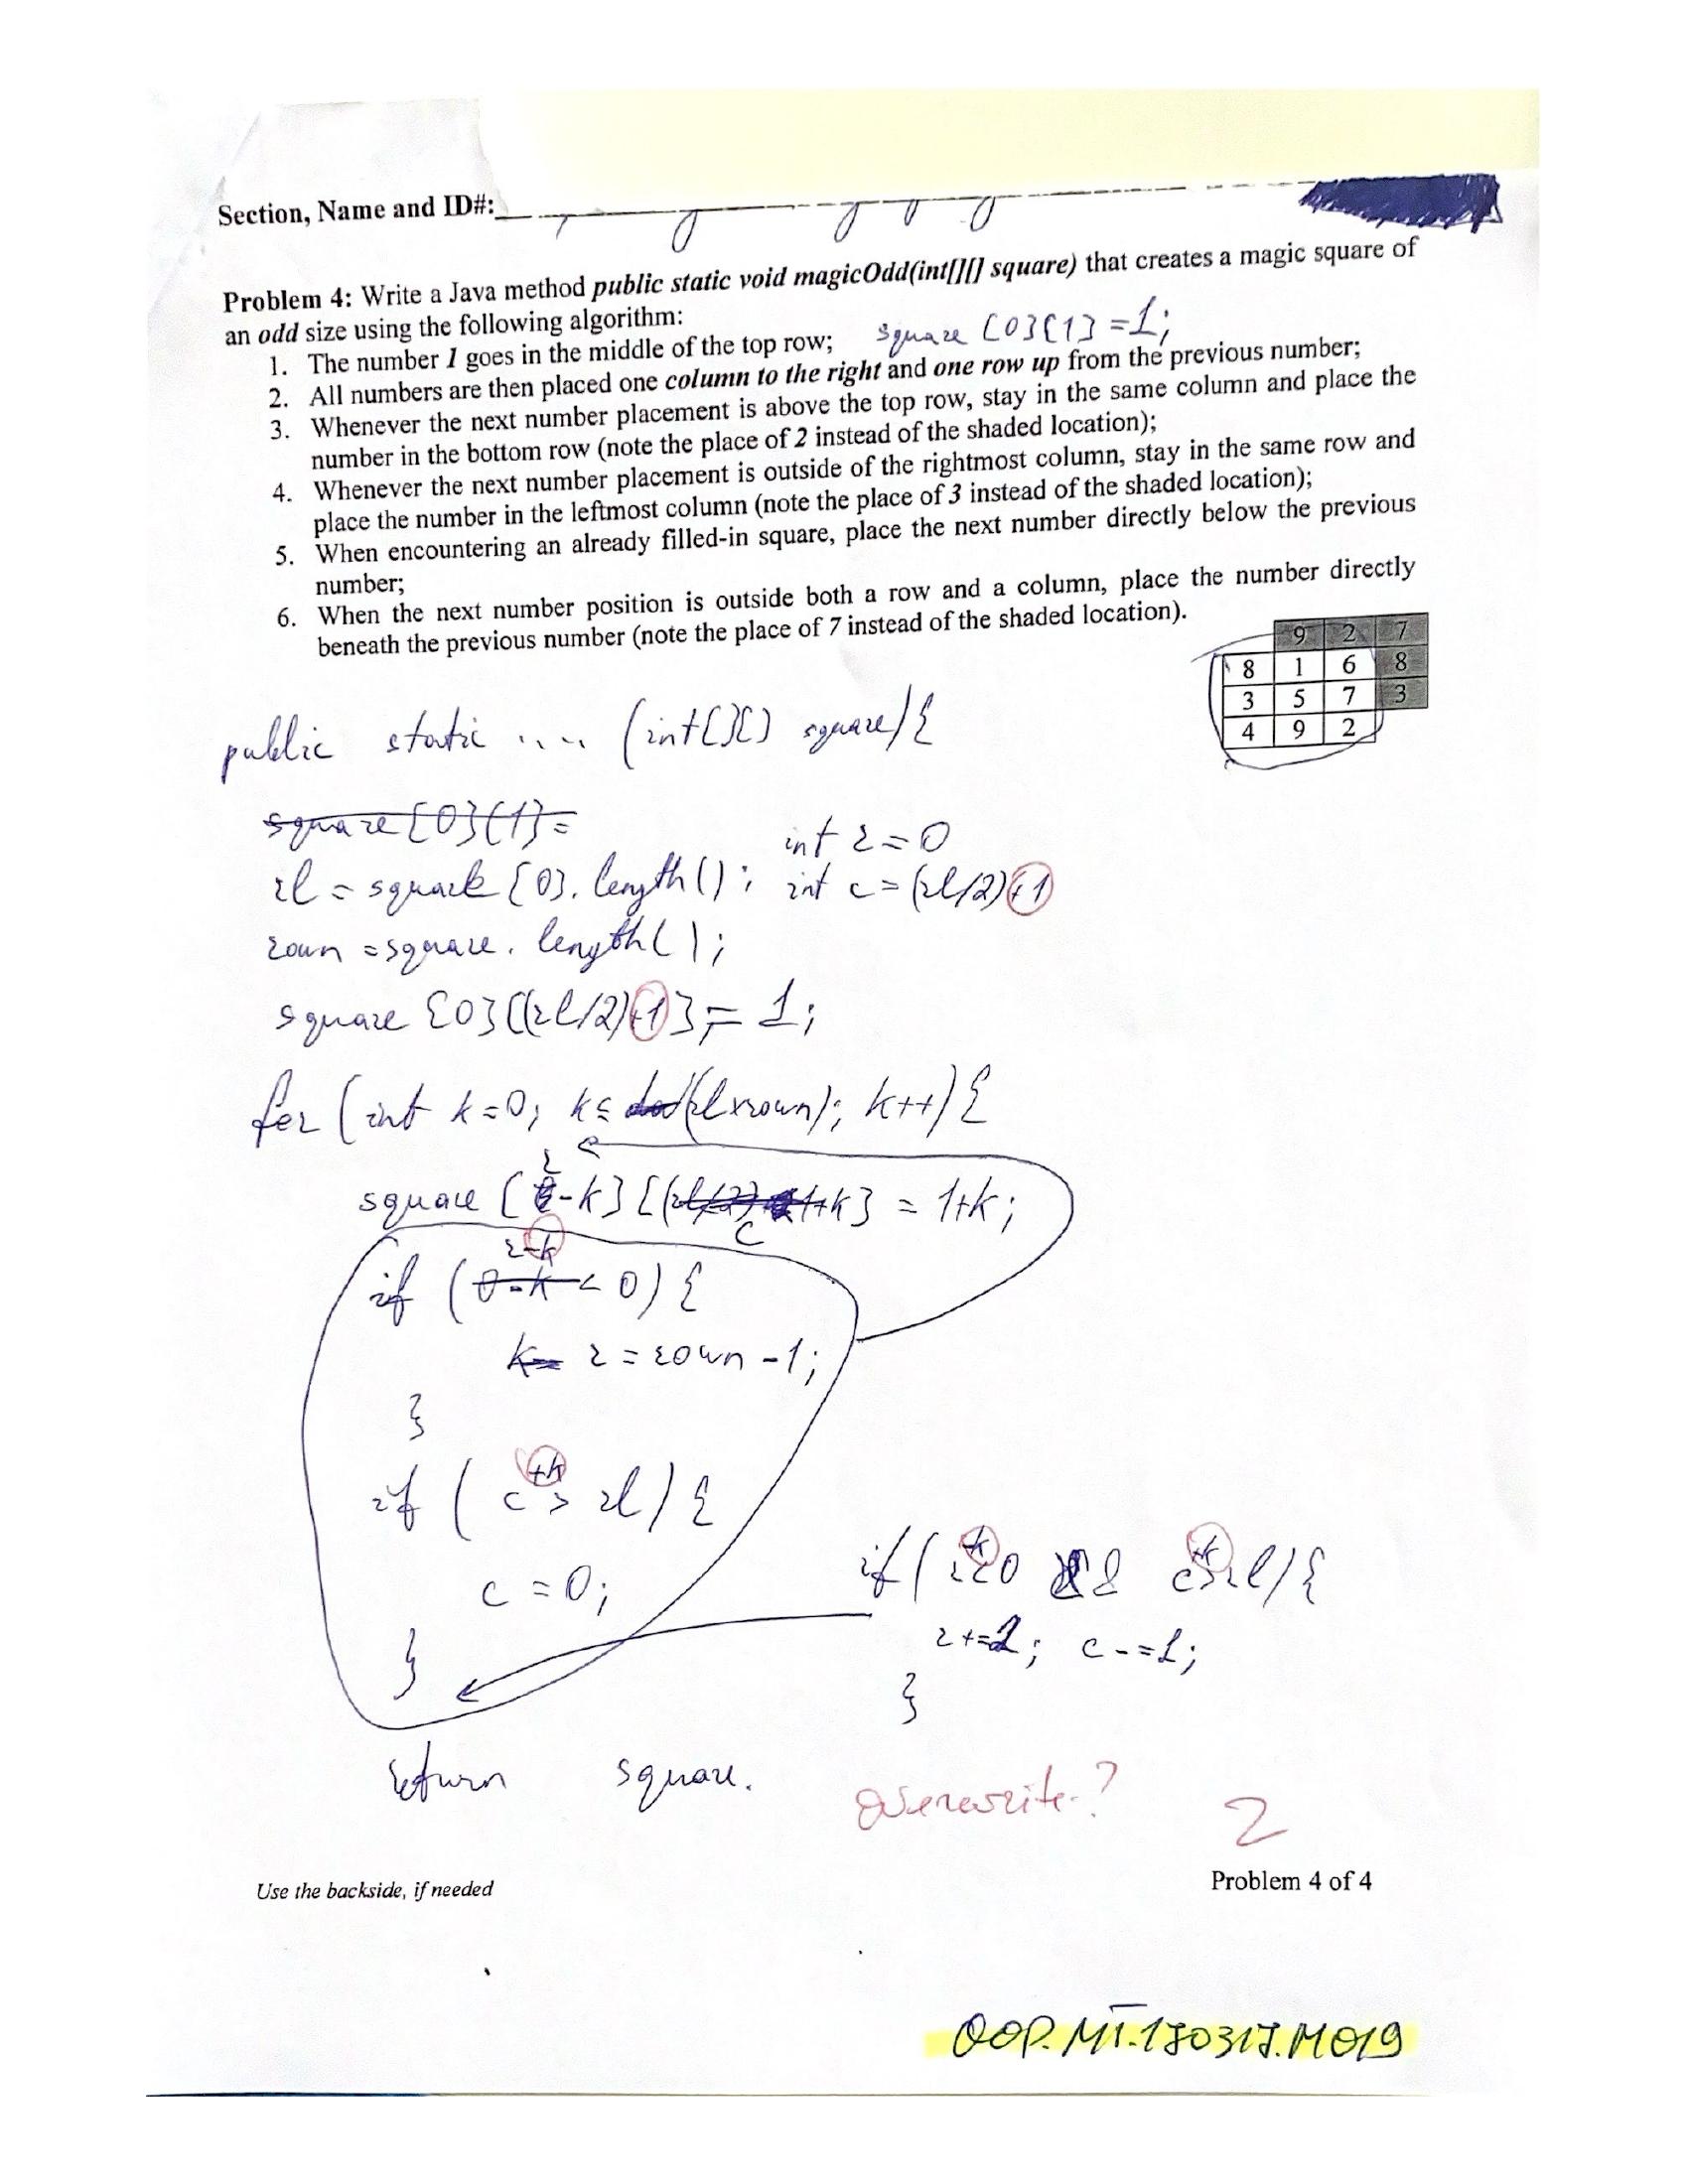 Section, Name and ID#:
Problem 4: Write a Java method public static void magicOdd(int[][] square) that creates a magic square of
an odd size using the following algorithm:
square [0][1] = 1;
1. The number 1 goes in the middle of the top row;
2. All numbers are then placed one column to the right and one row up from the previous number;
3. Whenever the next number placement is above the top row, stay in the same column and place the
number in the bottom row (note the place of 2 instead of the shaded location);
4. Whenever the next number placement is outside of the rightmost column, stay in the same row and
place the number in the leftmost column (note the place of 3 instead of the shaded location);
5. When encountering an already filled-in square, place the next number directly below the previous
number;
6. When the next number position is outside both a row and a column, place the number directly
beneath the previous number (note the place of 7 instead of the shaded location).
9 2 7
8 1 6 8
3 5 7 3
4 9 2
public static .... (int[][] square) {
square [0][1] =
int r = 0
rl = square [0]. length(); int c = (rl/2)+1
rown = square. length();
square [0][(rl/2)+1] = 1;
for (int k=0; k≤ (rl×rown); k++) {
square [r-k] [c+k] = 1+k;
r-k
if (0-k < 0) {
r = rown -1;
}
if ( c+k > rl) {
c = 0;
}
if (r-k<0 && c+k>rl) {
r+=2; c-=1;
}
return square.
overwrite?
2
Use the backside, if needed
Problem 4 of 4
OOP.MT.170317.M019